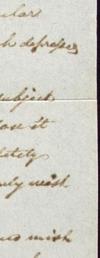 ular
h depress
subject
lose it
letely
nly wish
us wish